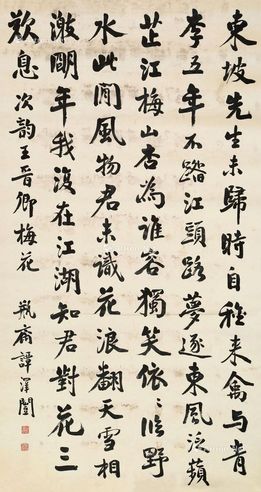 東坡先生未歸時自種来禽与青
李五年不踏江頭路夢逐東風泛蘋
芷江梅山杏為誰容獨笑依〻臨野
水此間風物君未識花浪翻天雪相
激明年我復在江湖知君對花三
歎息 次韵王晋卿梅花 瓶齋譚澤闓